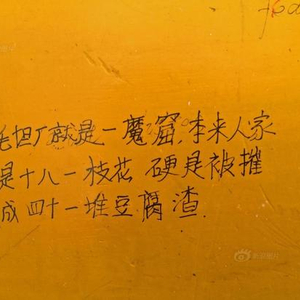 毛坦厂就是一魔窟,本来人家
是十八一枝花 硬是被摧
成四十一堆豆腐渣